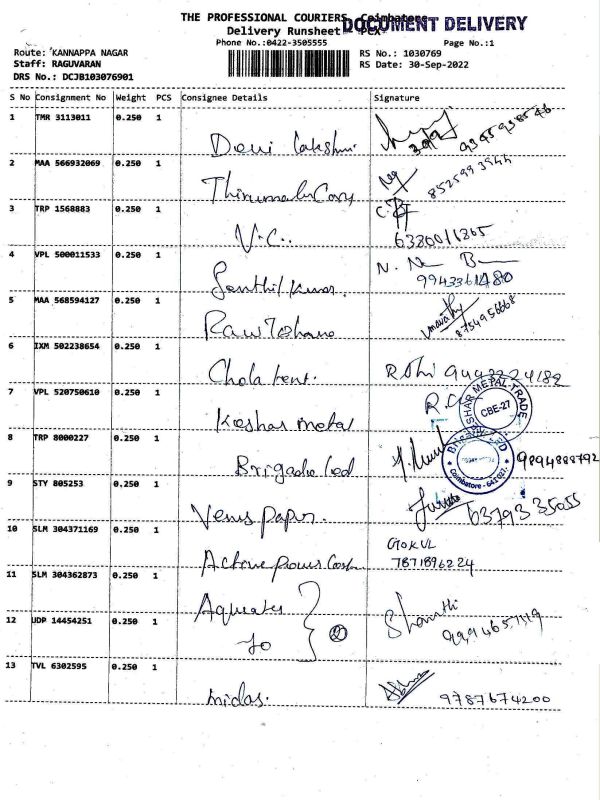 THE PROFESSIONAL COURIERS, Coimbatore
DOCUMENT DELIVERY
Delivery Runsheet - PCX
Phone No.:0422-3505555 Page No.:1
Route: KANNAPPA NAGAR RS No.: 1030769
Staff: RAGUVARAN RS Date: 30-Sep-2022
DRS No.: DCJB103076901
S No Consignment No Weight PCS Consignee Details Signature
1 TMR 3113011 0.250 1
Devi Lakshmi
2 MAA 566932069 0.250 1
8525993944
3 TRP 1568883 0.250 1
V.C.. 6380011865
4 VPL 500011533 0.250 1
Senthil kumar. 9943361480
5 MAA 568594127 0.250 1
8754956668
6 IXM 502238654 0.250 1
Chola tent. 9443224182
7 VPL 520750610 0.250 1
Keshar metal
KESHAR METAL TRADE
CBE-27
8 TRP 8000227 0.250 1
Brigade led 9894888792
Coimbatore - 641 027.
9 STY 805253 0.250 1
Venus paper. 6379335055
10 SLM 304371169 0.250 1
Active power GOKUL
7871896224
11 SLM 304362873 0.250 1
Aquatex Shanthi
12 UDP 14454251 0.250 1
Jo 2
13 TVL 6302595 0.250 1
midas. 9787674200